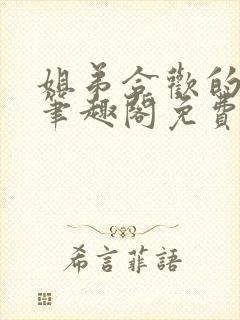 姐弟合歡的
筆趣閣免費
希言菲語